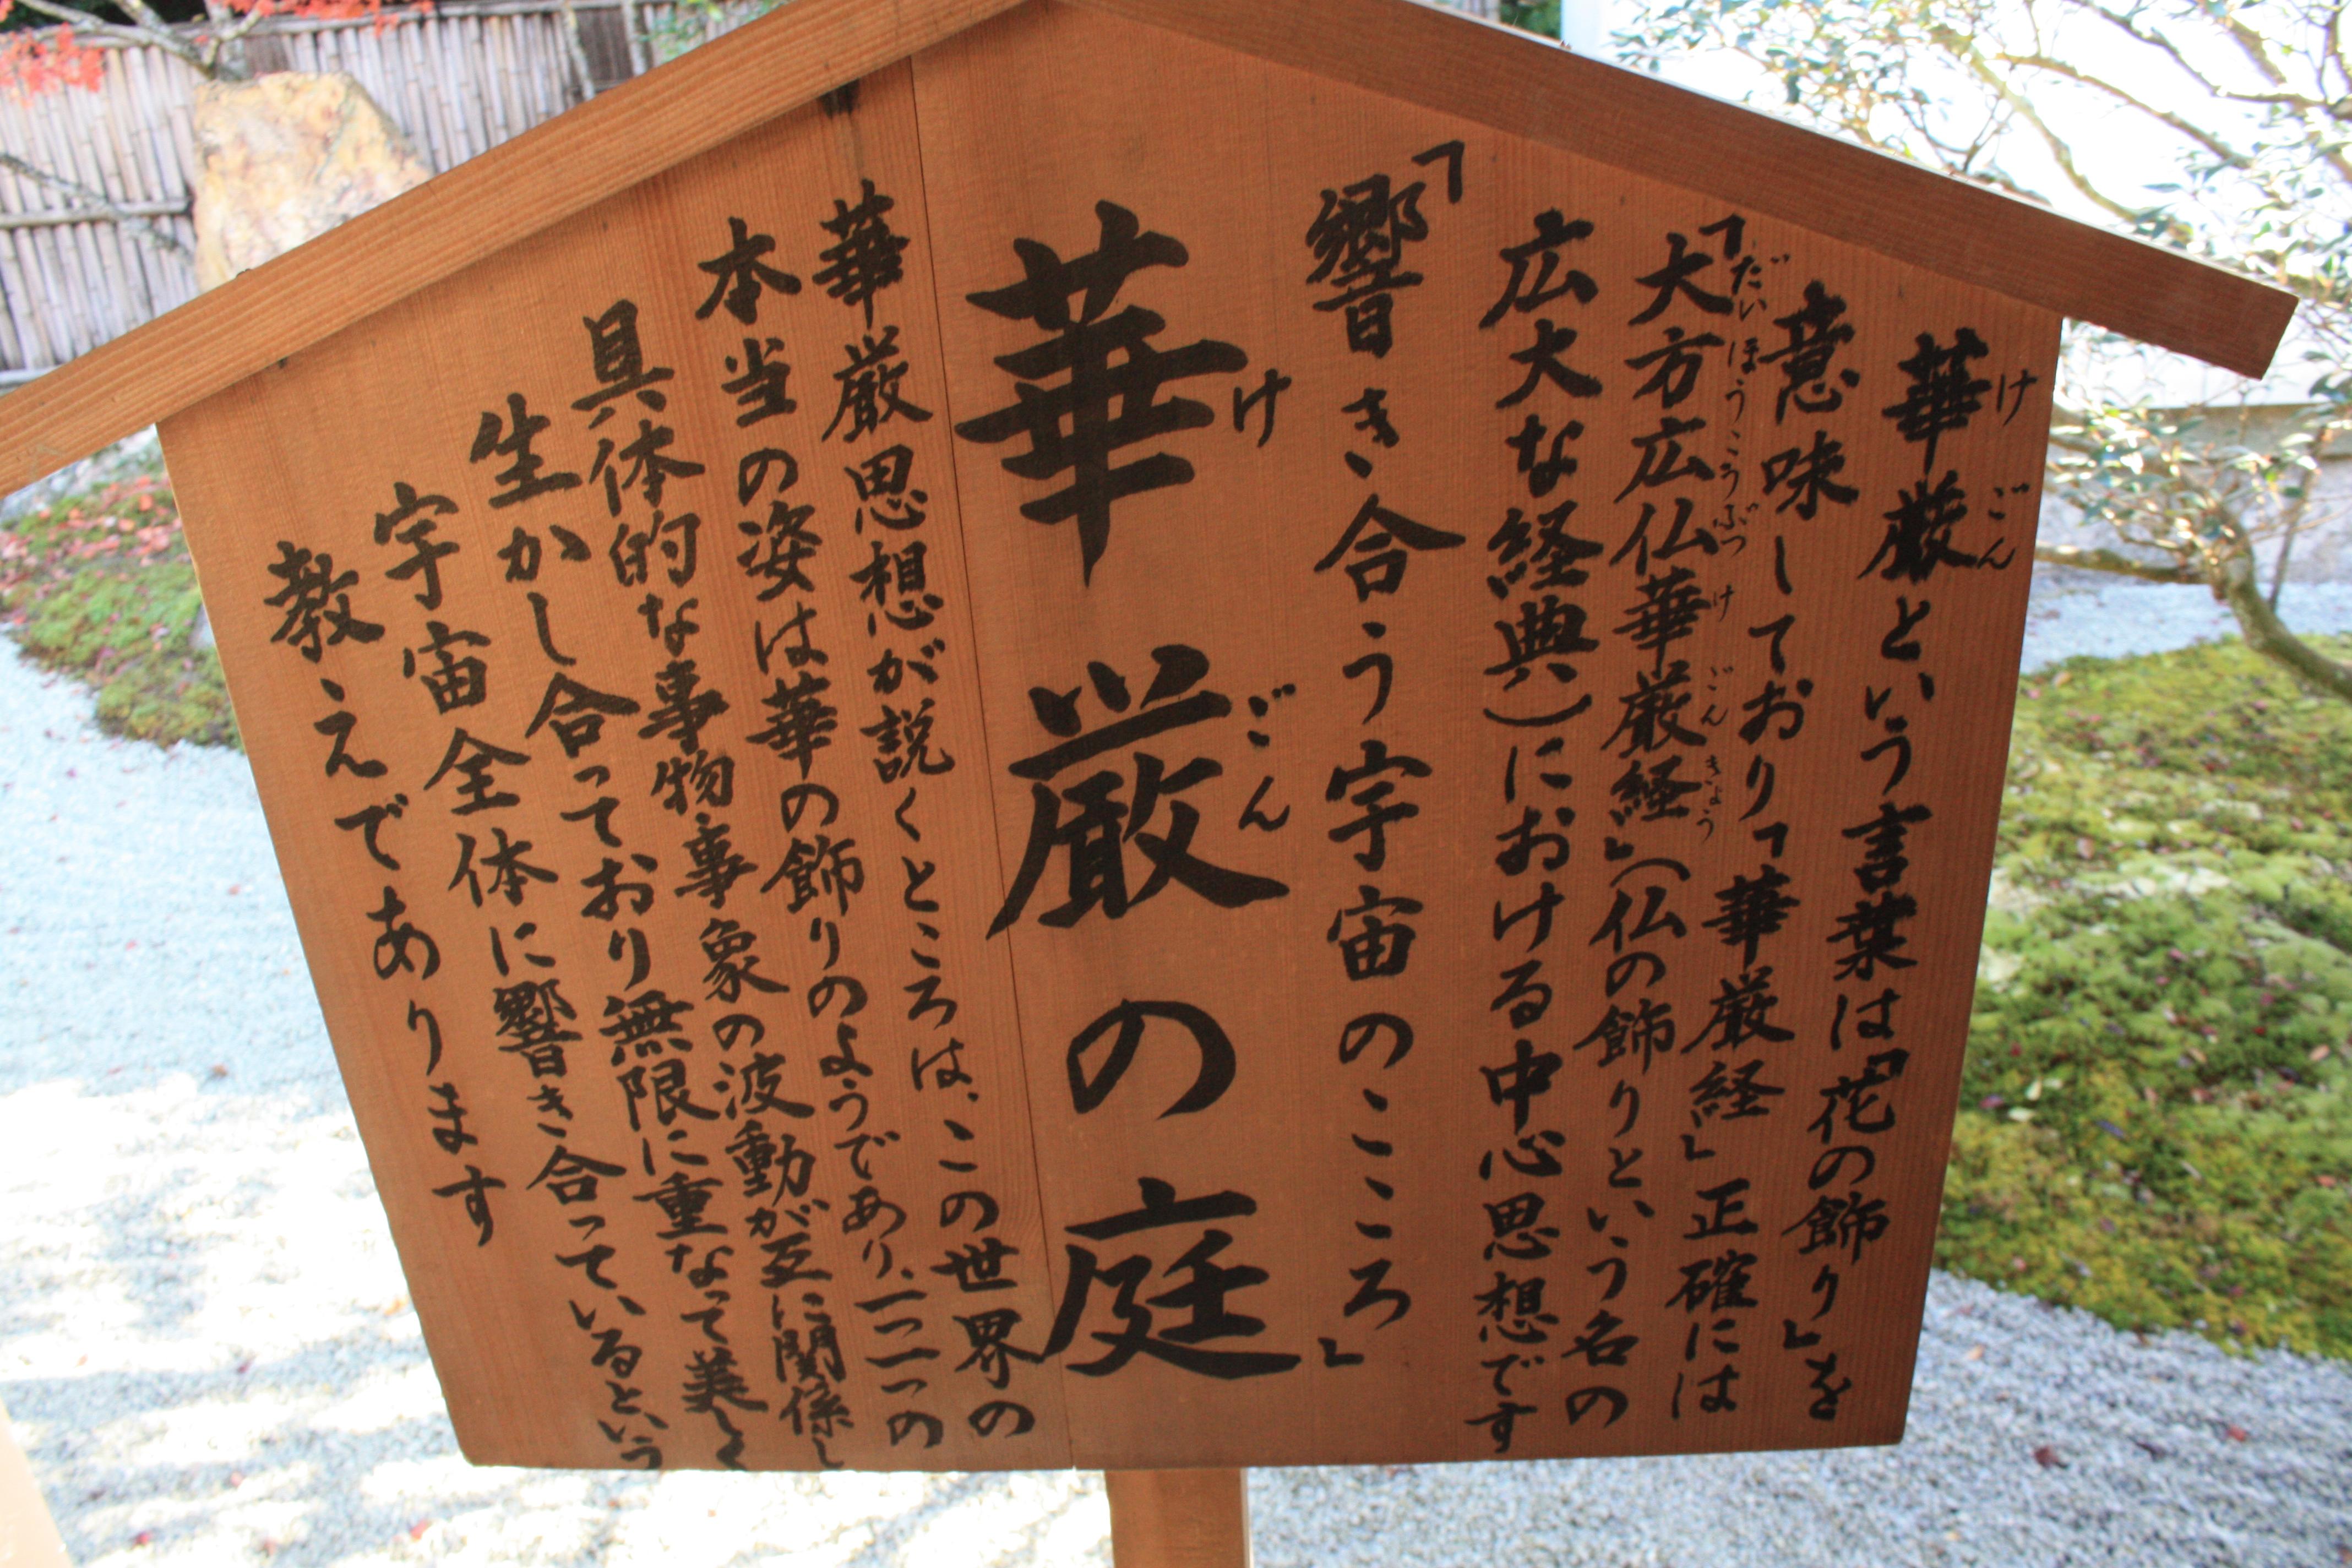 華厳という言葉は「花の飾り」を
意味しており「華厳経」正確には
「大方広仏華厳経」(仏の飾りという名の
広大な経典)における中心思想です
「響き合う宇宙のこころ」
華厳の庭
華厳思想が説くところは、この世界の
本当の姿は華の飾りのようであり、一つ一つの
具体的な事物事象の波動が互に関係し
生かし合っており無限に重なって美しく
宇宙全体に響き合っているという
教えであります
けごん
だいほうこうぶつけごんきょう
けごん